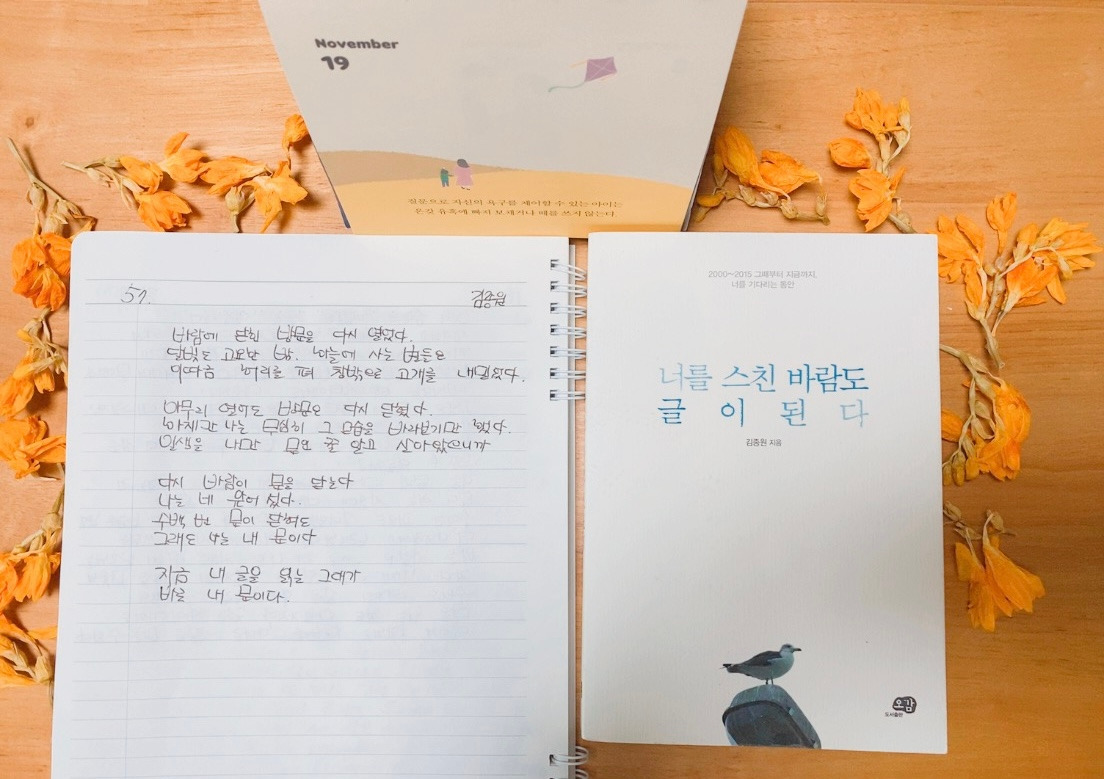 November
19
질문으로 자신의 욕구를 제어할 수 있는 아이는
온갖 유혹에 빠져 보채거나 떼를 쓰지 않는다
57.
김종원
바람에 닫힌 방문을 다시 열었다.
달빛도 고요한 밤. 하늘에 사는 별들은
이따금 허리를 펴 창밖으로 고개를 내밀었다.
아무리 열어도 방문은 다시 닫혔다.
하지만 나는 무심히 그 모습을 바라보기만 했다.
인생을 나만 열면 될 알고 살아왔으니까
다시 바람이 문을 닫는다
나는 네 앞에 섰다.
수백 번 문이 닫혀도
그래도 너는 내 문이다
지금 내 글을 읽는 그대가
바로 내 문이다.
2000~2015 그때부터 지금까지,
너를 기다리는 동안
너를 스친 바람도
글이 된다
김종원 지음
오감
도서출판